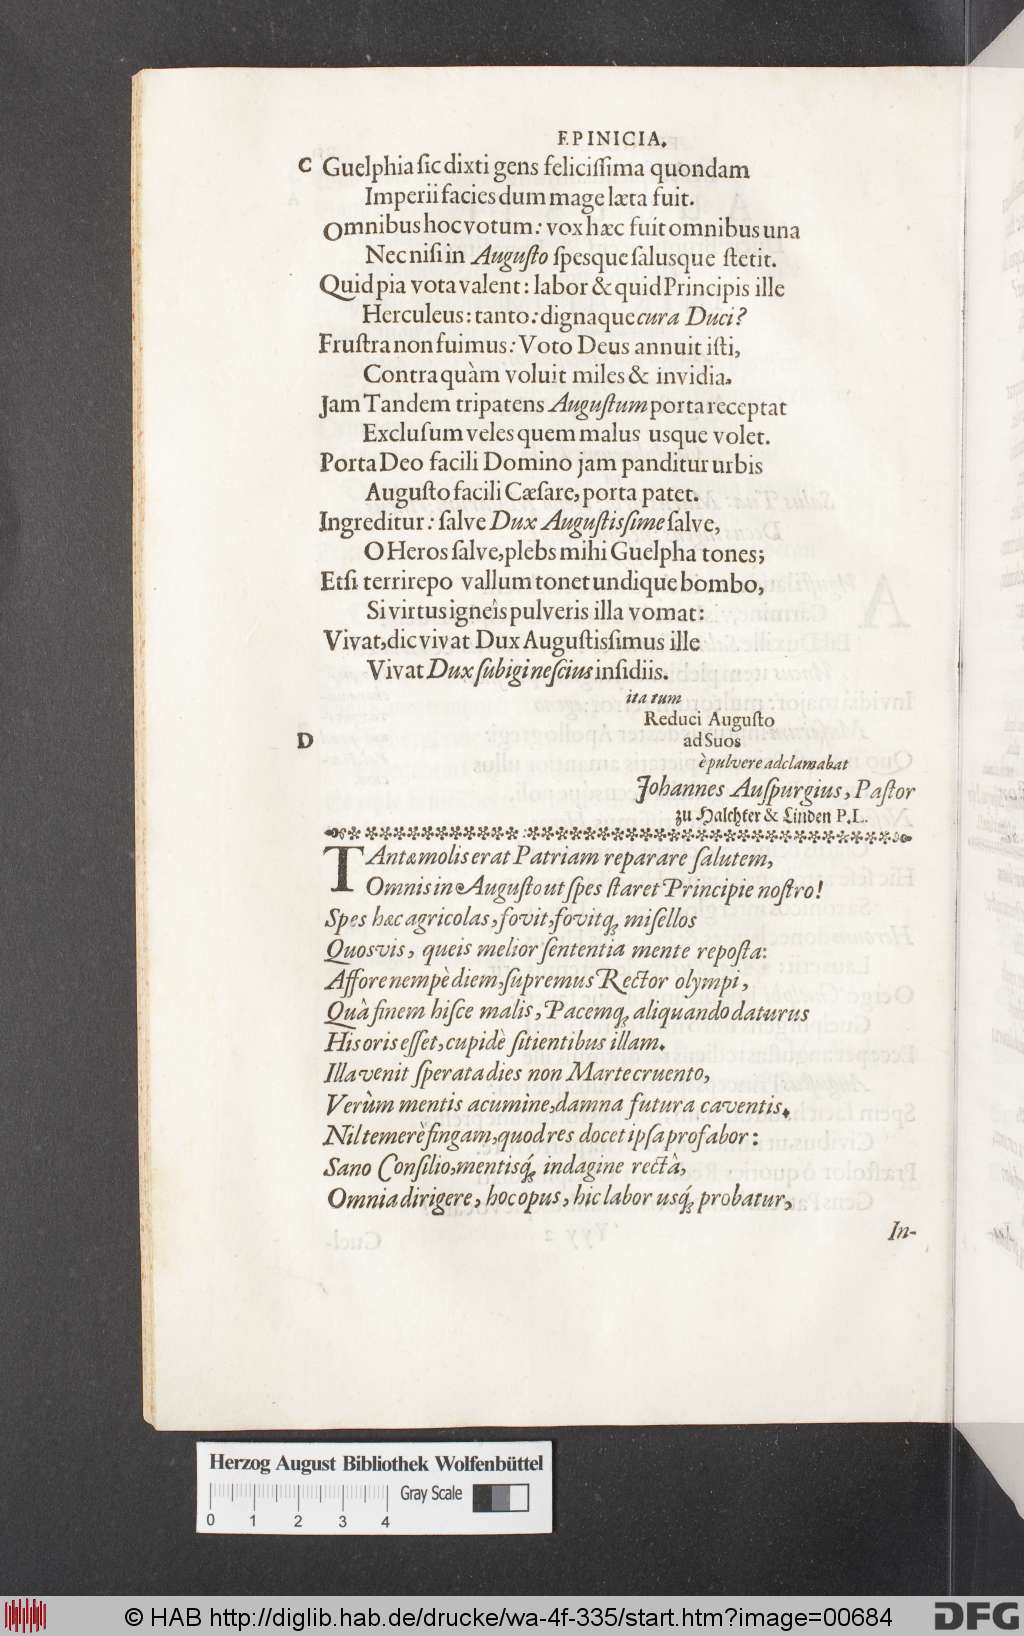 EPINICIA.
C Guelphia ſic dixti gens feliciſſima quondam
Imperii facies dum mage læta fuit.
Omnibus hoc votum: vox hæc fuit omnibus una
Nec niſi in Auguſto ſpesque ſalusque ſtetit.
Quid pia vota valent: labor & quid Principis ille
Herculeus: tanto: dignaque cura Duci?
Fruſtra non fuimus: Voto Deus annuit iſti,
Contra quàm voluit miles & invidia.
Jam Tandem tripatens Auguſtum porta receptat
Excluſum veles quem malus usque volet.
Porta Deo facili Domino jam panditur urbis
Auguſto facili Cæſare, porta patet.
Ingreditur: ſalve Dux Auguſtisſime ſalve,
O Heros ſalve, plebs mihi Guelpha tones;
Etſi terrirepo vallum tonet undique bombo,
Si virtus igneîs pulveris illa vomat:
Vivat, dic vivat Dux Auguſtisſimus ille
Vivat Dux ſubigi neſcius inſidiis.
ita tum
Reduci Auguſto
D ad Suos
è pulvere adclamabat
Johannes Auſpurgius, Paſtor
zu Halchter & Linden P. L.
TAntæ molis erat Patriam reparare ſalutem,
Omnis in Auguſto ut ſpes ſtaret Principie noſtro!
Spes hæc agricolas, fovit, fovitq; miſellos
Quosvis, queis melior ſententia mente repoſta:
Affore nempè diem, ſupremus Rector olympi,
Quâ finem hiſce malis, Pacemq; aliquando daturus
His oris eſſet, cupidè ſitientibus illam.
Illa venit ſperata dies non Marte cruento,
Verùm mentis acumine, damna futura caventis.
Nil temerè fingam, quod res docet ipſa profabor:
Sano Conſilio, mentisq́; indagine rectà,
Omnia dirigere, hoc opus, hic labor usq́; probatur,
In-
Herzog August Bibliothek Wolfenbüttel
Gray Scale
0 1 2 3 4
© HAB http://diglib.hab.de/drucke/wa-4f-335/start.htm?image=00684
DFG